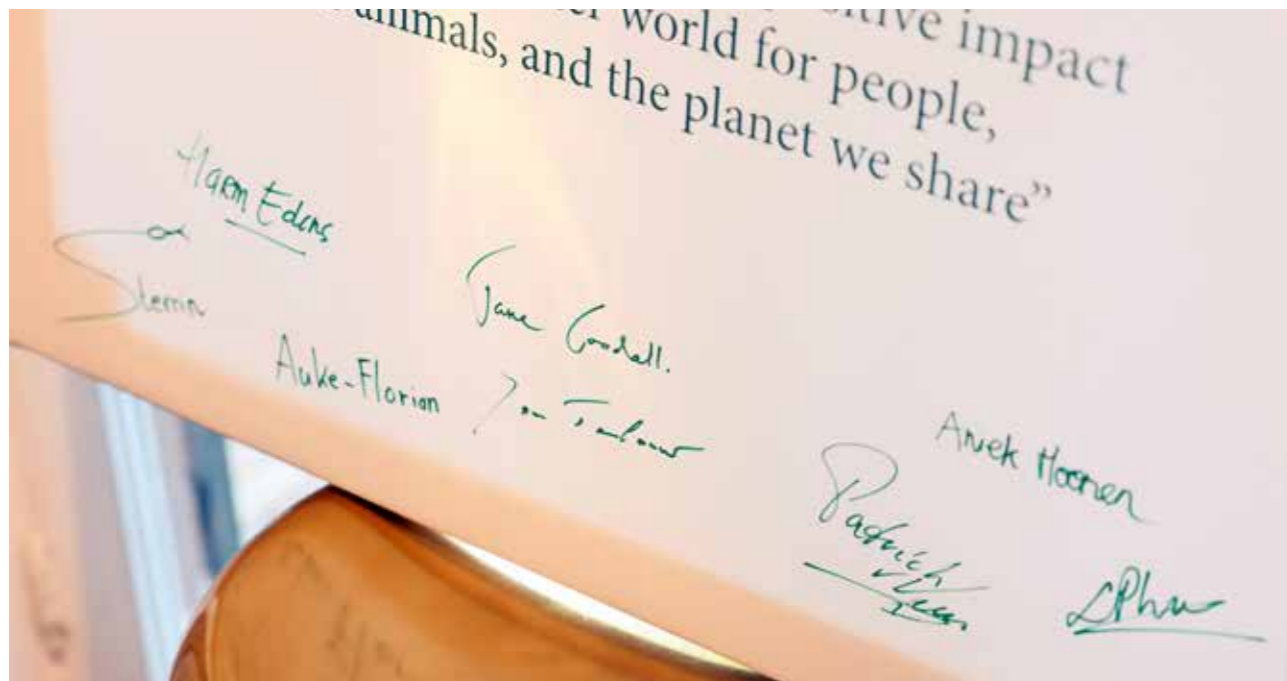 itive impact
world for people,
animals, and the planet we share”
Harm Edens
Sterrin
Jane Goodall.
Auke-Florian
Patrick
Anek Hoenen